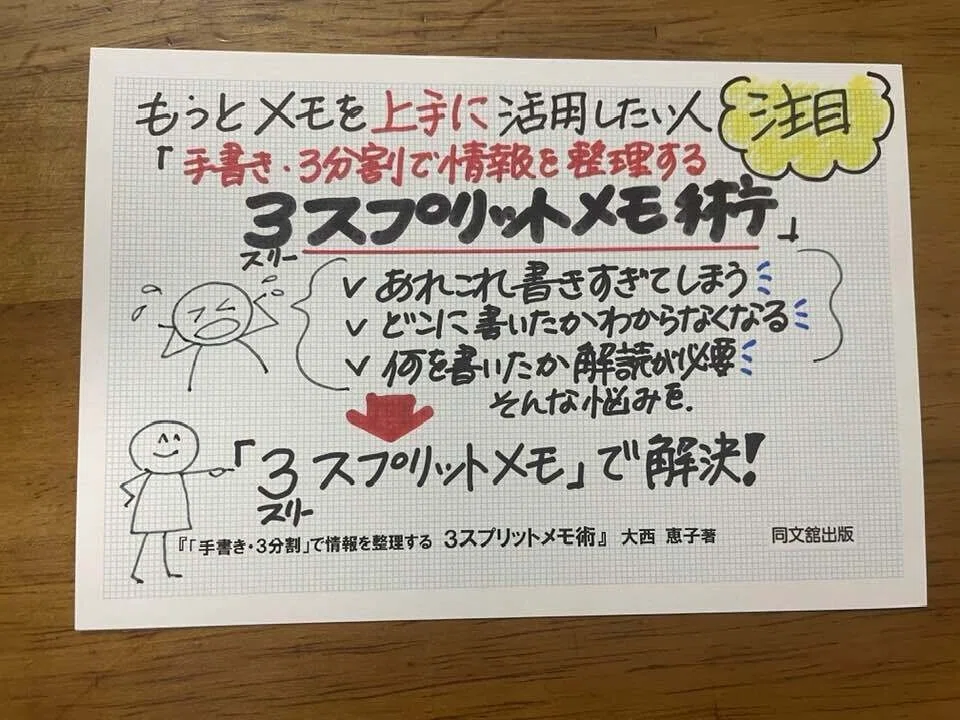 もっとメモを上手に活用したい人
注目
「手書き・3分割で情報を整理する
3スプリットメモ術」
スリー
✓ あれこれ書きすぎてしまう
✓ どこに書いたかわからなくなる
✓ 何を書いたか解読が必要
そんな悩みを.
「3スプリットメモ」で解決!
スリー
『「手書き・3分割」で情報を整理する 3スプリットメモ術』 大西 恵子著 同文舘出版